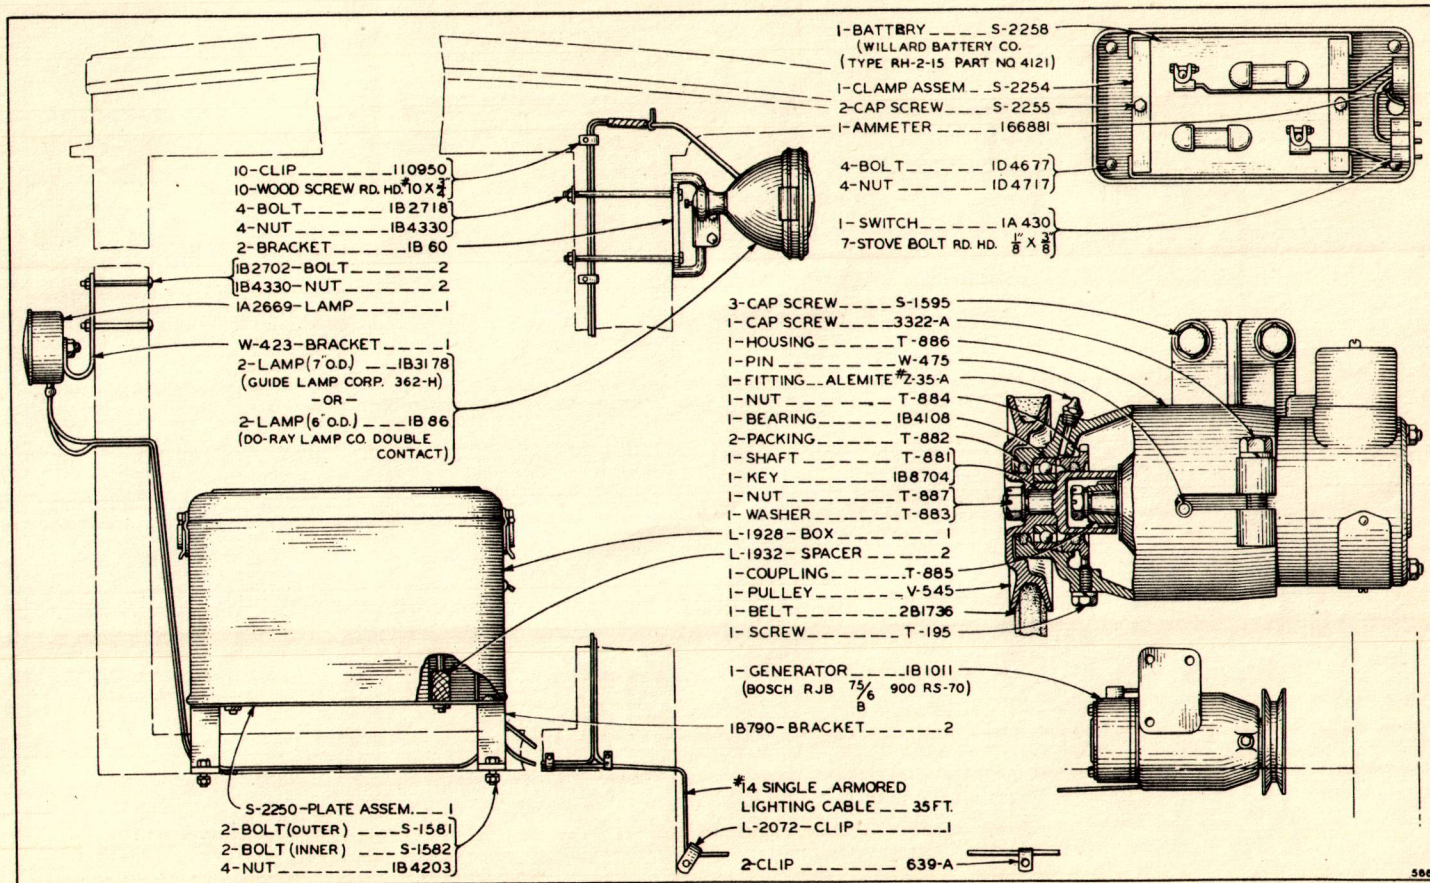 1-BATTERY____S-2258
(WILLARD BATTERY CO.
(TYPE RH-2-15 PART NO 4121)
1-CLAMP ASSEM__S-2254
2-CAP SCREW___S-2255
1-AMMETER____166881
4-BOLT_____1D4677
4-NUT_____1D4717
1-SWITCH____1A430
7-STOVE BOLT RD. HD. 1/8" X 3/8"
10-CLIP______110950
10-WOOD SCREW RD. HD. #10 X 3/4"
4-BOLT_____1B2718
4-NUT______1B4330
2-BRACKET___1B60
1B2702-BOLT_____2
1B4330-NUT_____2
1A2669-LAMP_____1
W-423-BRACKET____1
2-LAMP(7"O.D.)__1B3178
(GUIDE LAMP CORP. 362-H)
-OR-
2-LAMP(6"O.D.)___1B86
(DO-RAY LAMP CO. DOUBLE
CONTACT)
3-CAP SCREW____S-1595
1-CAP SCREW___3322-A
1-HOUSING_____T-886
1-PIN______W-475
1-FITTING__ALEMITE #Z-35-A
1-NUT______T-884
1-BEARING____1B4108
2-PACKING____T-882
1-SHAFT_____T-881
1-KEY______1B8704
1-NUT______T-887
1-WASHER____T-883
L-1928-BOX______1
L-1932-SPACER____2
1-COUPLING____T-885
1-PULLEY_____V-545
1-BELT______2B1736
1-SCREW_____T-195
1-GENERATOR___1B1011
(BOSCH RJB 75/6 900 RS-70)
B
1B790-BRACKET_____2
#14 SINGLE_ARMORED
LIGHTING CABLE__35FT.
L-2072-CLIP_____1
2-CLIP_____639-A
S-2250-PLATE ASSEM.__1
2-BOLT(OUTER)___S-1581
2-BOLT(INNER)___S-1582
4-NUT_______1B4203